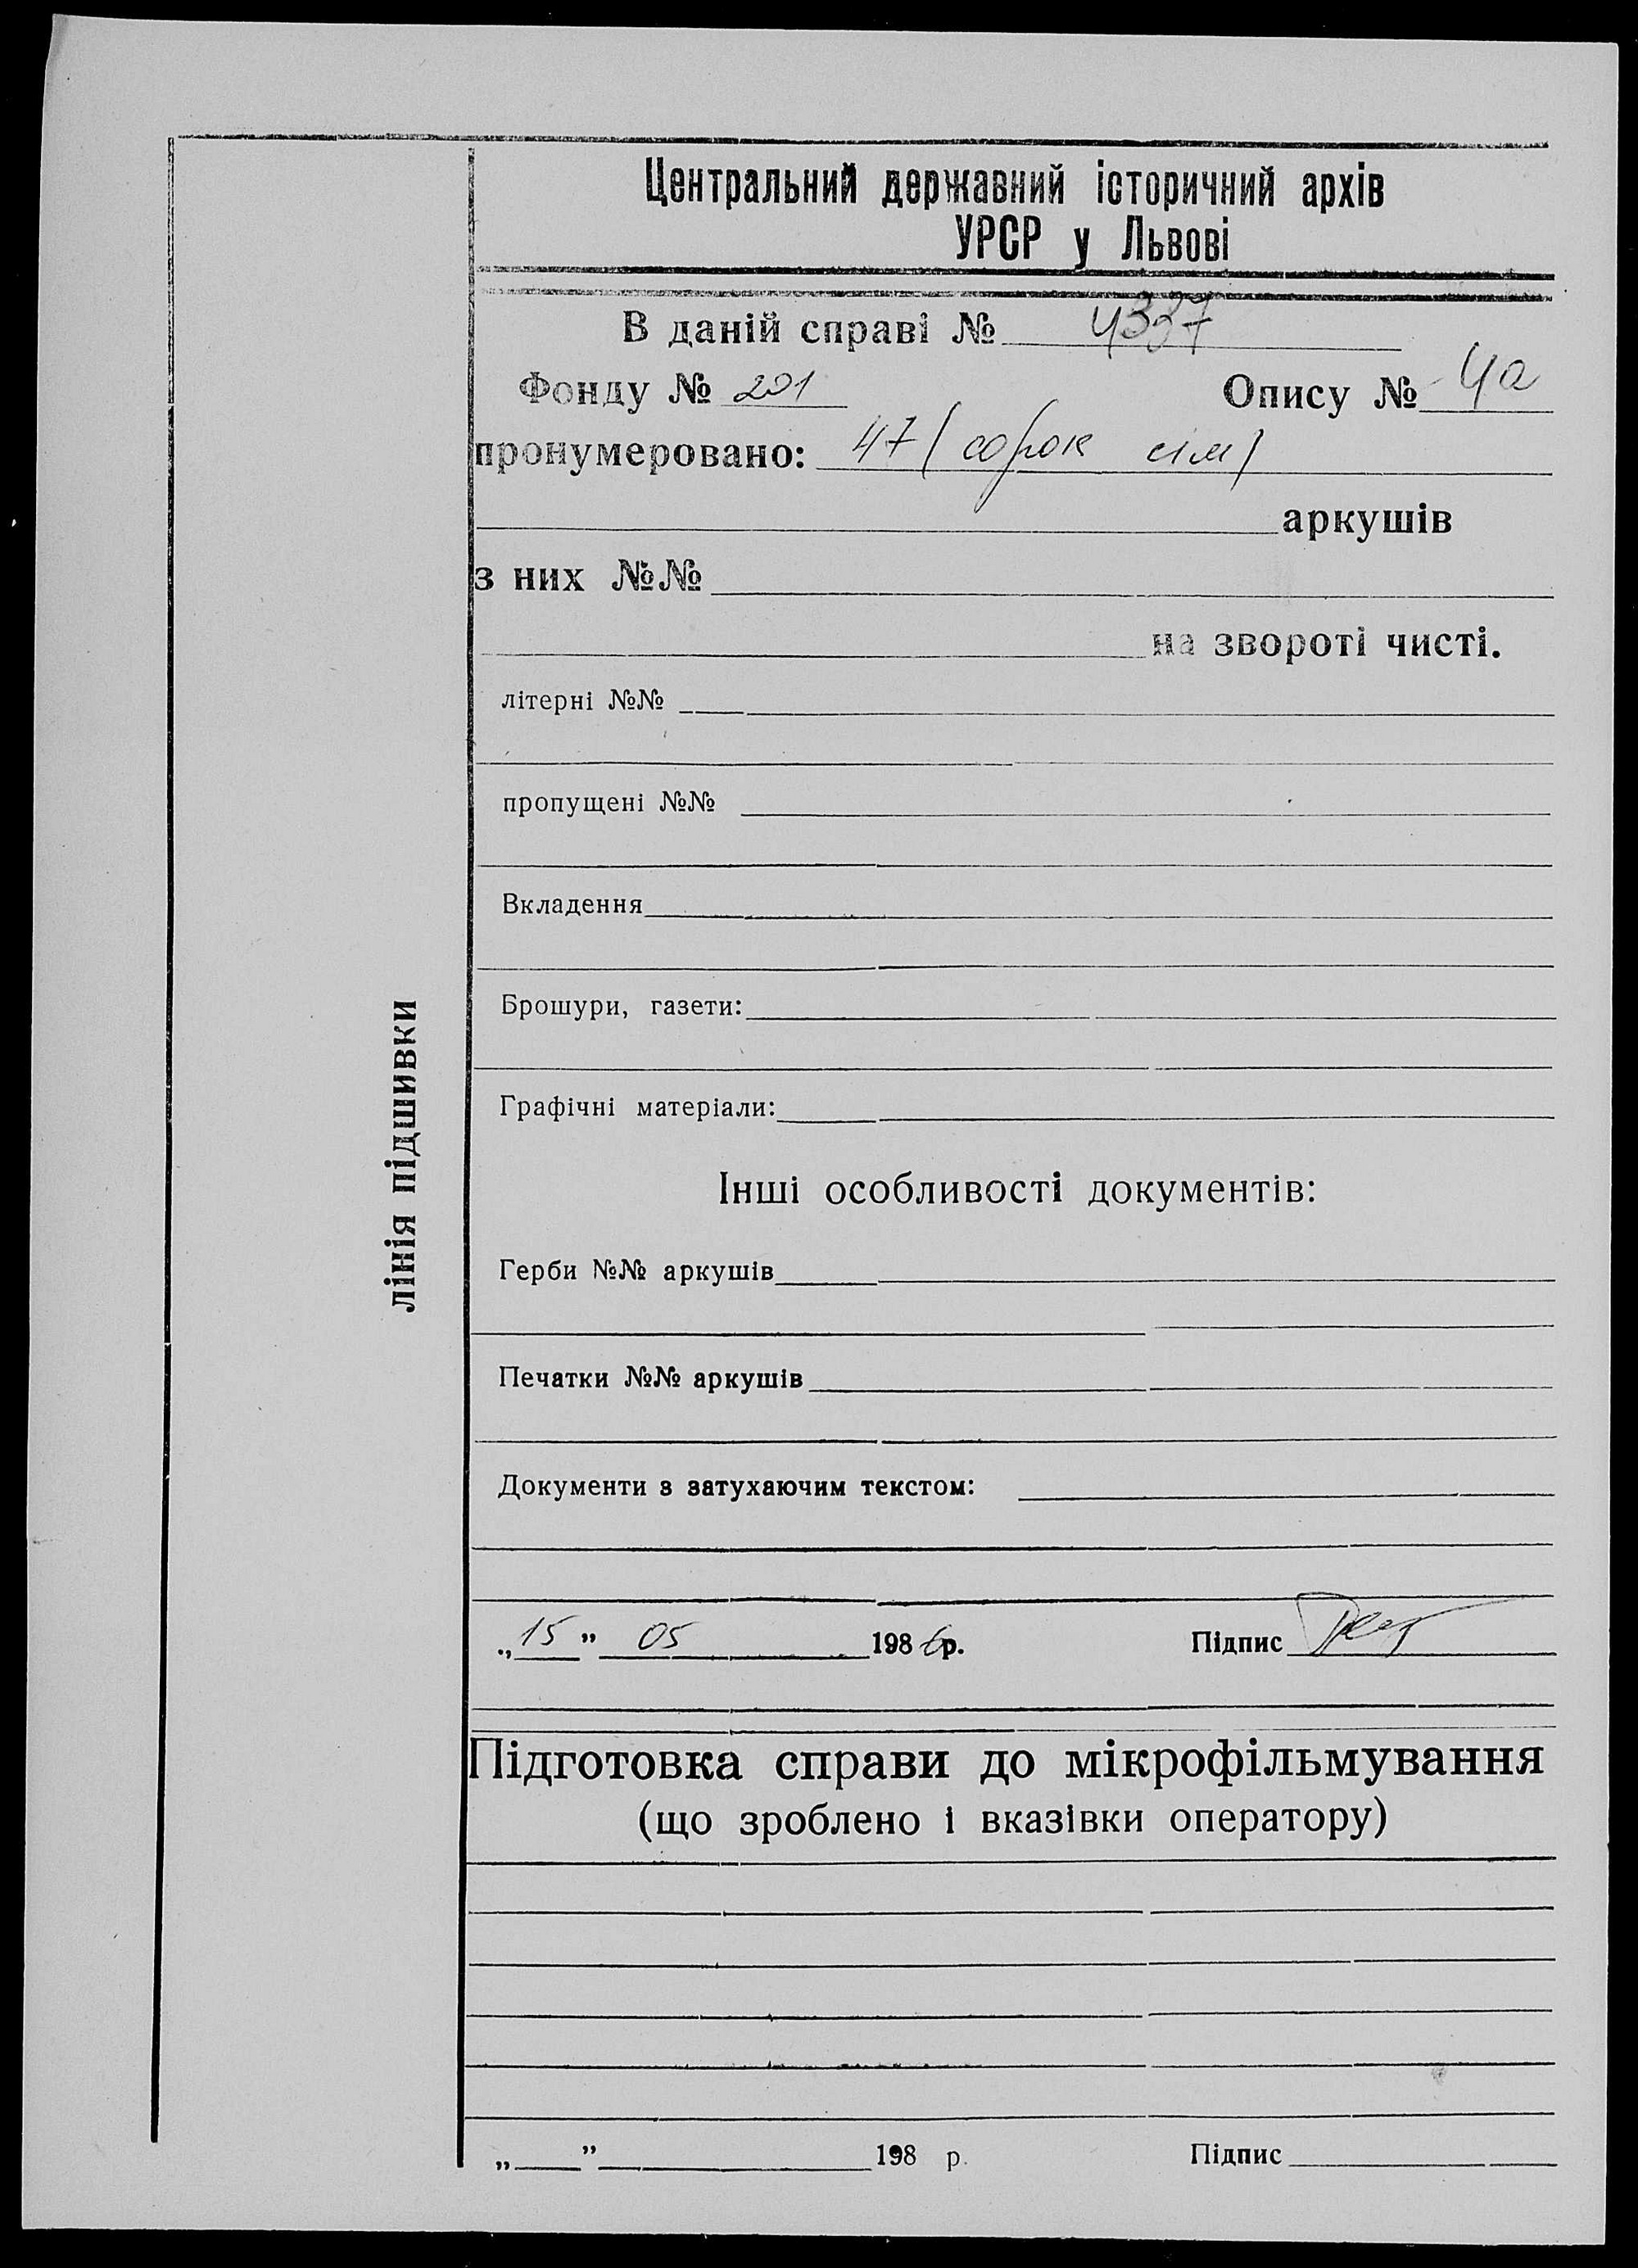 Центральний державний історичний архів
УРСР у Львові
В даній справі № 4337
Фонду № 201 Опису № 4а
пронумеровано: 47 (сорок сім)
аркушів
з них №№
на звороті чисті.
літерні №№
пропущені №№
Вкладення
Брошури, газети:
Графічні матеріали:
лінія підшивки
Інші особливості документів:
Герби №№ аркушів
Печатки №№ аркушів
Документи з затухаючим текстом:
„15” 05 1986р. Підпис
Підготовка справи до мікрофільмування
(що зроблено і вказівки оператору)
„ ” 198 р. Підпис